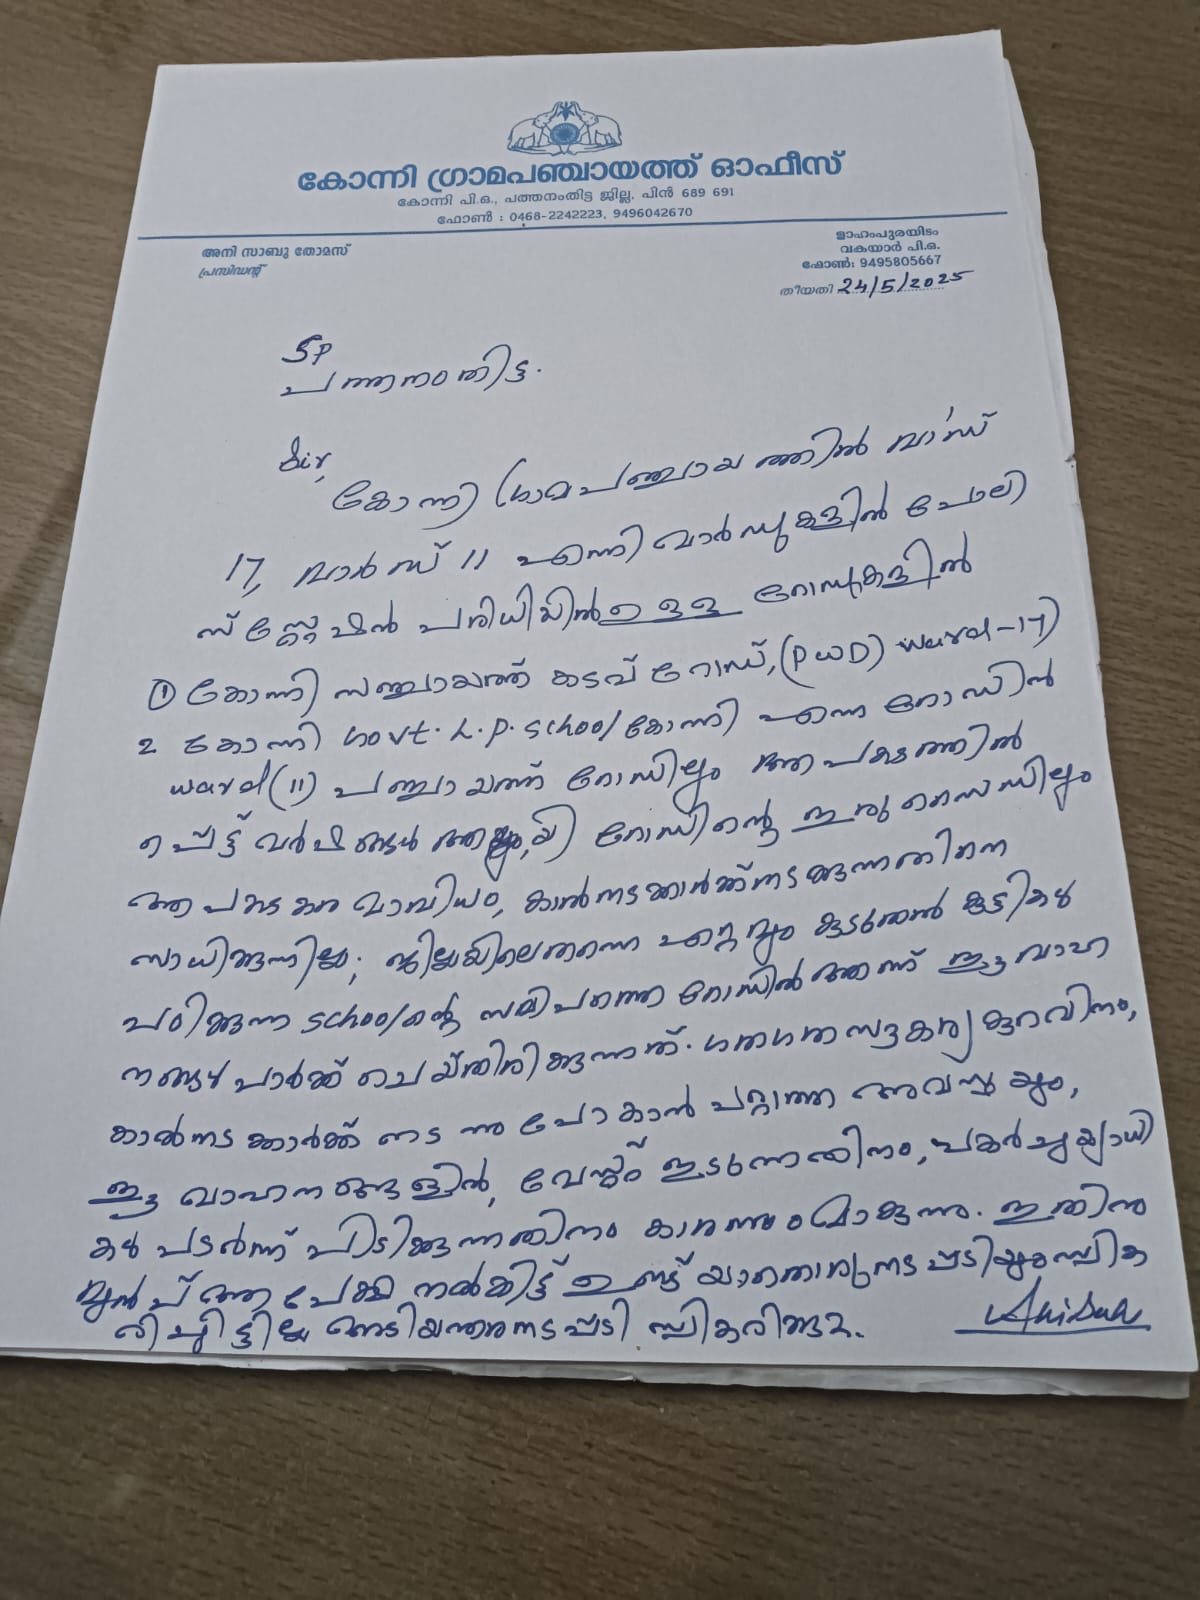 കോന്നി ഗ്രാമപഞ്ചായത്ത് ഓഫീസ്
കോന്നി പി.ഒ., പത്തനംതിട്ട ജില്ല, പിൻ 689 691
ഫോൺ : 0468-2242223, 9496042670
അനി സാബു തോമസ്
പ്രസിഡന്റ്
ളാഹംപുരയിടം
വകയാർ പി.ഒ.
ഫോൺ: 9495805667
തീയതി 24/5/2025
SP
പത്തനംതിട്ട.
Sir,
കോന്നി ഗ്രാമപഞ്ചായത്തിൽ വാർഡ്
17, വാർഡ് 11 എന്നി വാർഡുകളിൽ പോലി
സ് സ്റ്റേഷൻ പരിധിയിൽ ഉള്ള റോഡുകളിൽ
① കോന്നി പഞ്ചായത്ത് കടവ് റോഡ്, (PWD) ward-17)
2 കോന്നി Govt. L.P. School കോന്നി എന്ന റോഡിൽ
ward(11) പഞ്ചായത്ത് റോഡിലും അപകടത്തിൽ
പെട്ട് വർഷങ്ങൾ ആയി റോഡിന്റെ ഇരു സൈഡിലും
അപകടകരമാംവിധം, കാൽനടക്കാർക്ക് നടക്കുന്നതിനെ
സാധിക്കുന്നില്ല; ജില്ലയിലെതന്നെ ഏറ്റവും കൂടുതൽ കുട്ടികൾ
പഠിക്കുന്ന School ന്റെ സമീപത്തെ റോഡിൽ ആണ് ഈ വാഹ
നങ്ങൾ പാർക്ക് ചെയ്തിരിക്കുന്നത്. ഗതാഗതസൗകര്യ കുറവിനും,
കാൽനടക്കാർക്ക് നടന്നു പോകാൻ പറ്റാത്ത അവസ്ഥയും,
ഈ വാഹനങ്ങളിൽ, വേസ്റ്റും ഇടുന്നതിനും, പകർച്ചവ്യാധി
കൾ പടർന്ന് പിടിക്കുന്നതിനും കാരണമാകുന്നു. ഇതിനു
മുൻപ് അപേക്ഷ നൽകിട്ട് ഉണ്ട് യാതൊരു നടപടിയും സ്വീക
രിച്ചിട്ടില്ല അടിയന്തര നടപടി സ്വീകരിക്കുക.